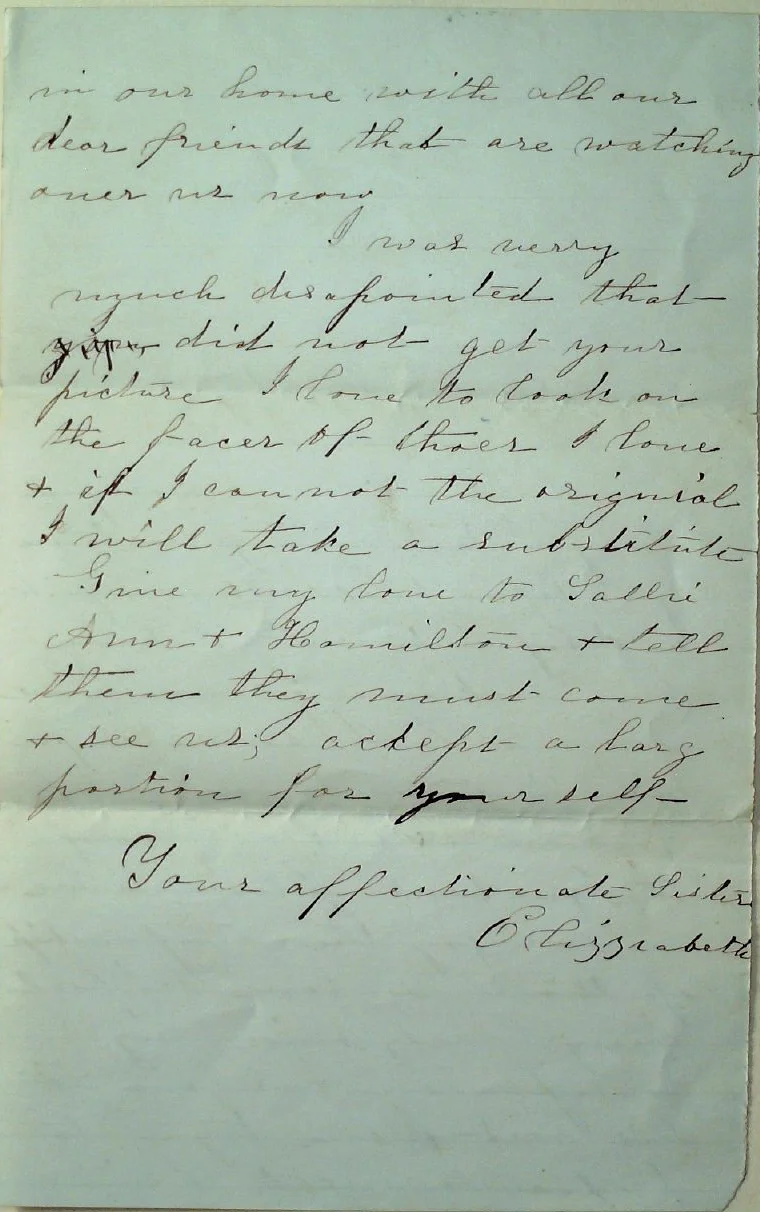 in our home with all our
dear friends that are watching
over us now
I was verry
much disapointed that
did not get your
picture I love to look on
the faces of thoes I love
& if I can not the original
I will take a substitute
Give my love to Sallie
Ann & Hamilton & tell
them they must come
& see us; accept a larg
portion for your self
Your affectionate Sister
Elizzabeth